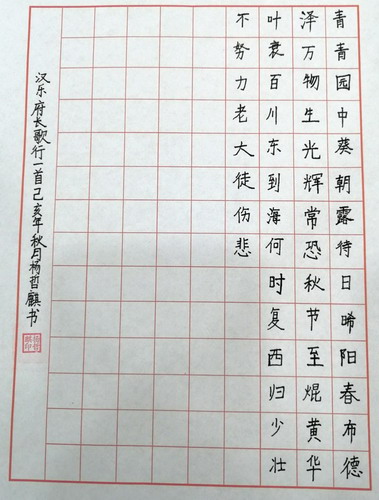 青青园中葵朝露待日晞阳春布德
泽万物生光辉常恐秋节至焜黄华
叶衰百川东到海何时复西归少壮
不努力老大徒伤悲
汉乐府长歌行一首己亥年秋月杨哲麒书